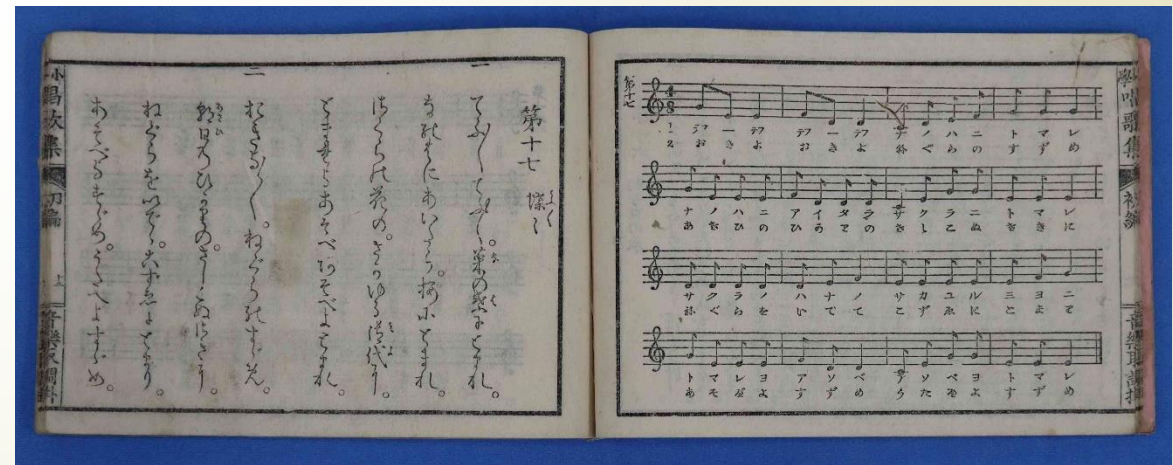 小學唱歌集 初編 音樂取調掛
第十七
テフ ー テフ テフ ー テフ ナ ノ ハ ニ ト マ レ
お き よ お き よ ね ぐ ら の す ず め
ナ ノ ハ ニ ア イ タ ラ サ ク ラ ニ ト マ レ
あ さ ひ の ひ か り の さ し こ ぬ さ き に
サ ク ラ ノ ハ ナ ノ サ カ ユ ル ミ ヨ ニ
ね ぐ ら を い で て こ ず ゑ に
ト マ レ ヨ ア ソ ベ ア ソ ベ ヨ ト マ レ
あ そ べ よ す ず め う た へ よ す ず め
第十七 蝶々
一 てふ〱てふ〱。菜の葉にとまれ。
なのはにあいたら。桜にとまれ。
さくらの花の。さかゆる御代に。
とまれよあそべ。あそべよとまれ。
二 おきよ〱。ねぐらのすゞめ。
朝日のひかりの。さしこぬさきに。
ねぐらをいでゝ。こずゑにとまり。
あそべよすゞめ。うたへよすゞめ。
小學唱歌集 初編 音樂取調掛